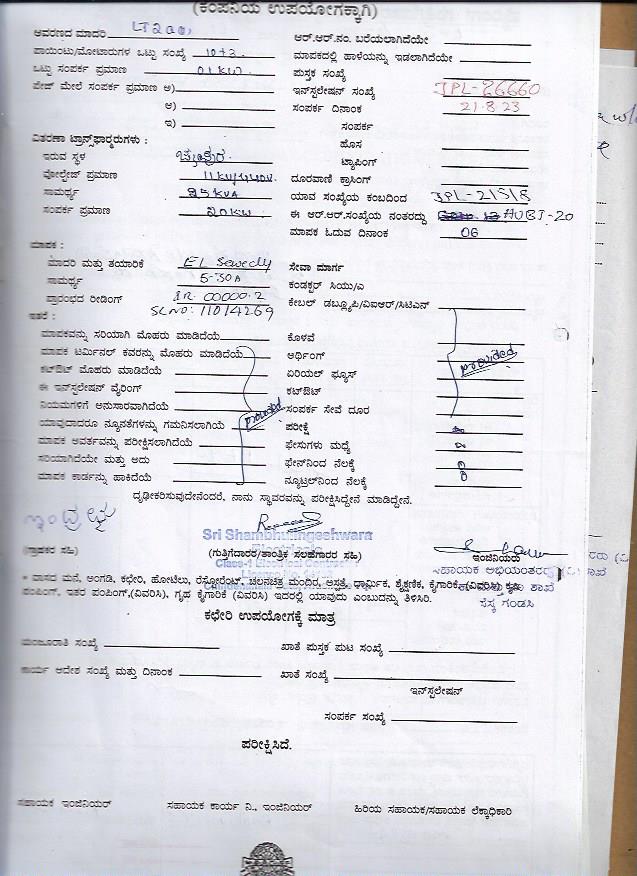 (ಕಂಪನಿಯ ಉಪಯೋಗಕ್ಕಾಗಿ)
ಆವರಣದ ಮಾದರಿ LT2a(ii)
ಪಾಯಿಂಟು/ಮೋಟಾರುಗಳ ಒಟ್ಟು ಸಂಖ್ಯೆ 10+2
ಒಟ್ಟು ಸಂಪರ್ಕ ಪ್ರಮಾಣ 01 KW
ಪೇಜ್ ಮೇಲೆ ಸಂಪರ್ಕ ಪ್ರಮಾಣ ಅ)
ಆ)
ಇ)
ವಿತರಣಾ ಟ್ರಾನ್ಸ್‌ಫಾರ್ಮರುಗಳು :
ಇರುವ ಸ್ಥಳ
ವೋಲ್ಟೇಜ್ ಪ್ರಮಾಣ 11KV/440V
ಸಾಮರ್ಥ್ಯ 25 KVA
ಸಂಪರ್ಕ ಪ್ರಮಾಣ 20KW
ಮಾಪಕ :
ಮಾದರಿ ಮತ್ತು ತಯಾರಿಕೆ EL Sewedy
ಸಾಮರ್ಥ್ಯ 5-30A
ಪ್ರಾರಂಭದ ರೀಡಿಂಗ್ IR. 00000.2
SL NO: 11014269
ಇತರೆ :
ಮಾಪಕವನ್ನು ಸರಿಯಾಗಿ ಮೊಹರು ಮಾಡಿದೆಯೆ
ಮಾಪಕ ಟರ್ಮಿನಲ್ ಕವರನ್ನು ಮೊಹರು ಮಾಡಿದೆಯೆ
ಕಟ್‌ಔಟ್ ಮೊಹರು ಮಾಡಿದೆಯೆ
ಈ ಇನ್‌ಸ್ಟಲೇಷನ್ ವೈರಿಂಗ್
ನಿಯಮಗಳಿಗೆ ಅನುಸಾರವಾಗಿದೆಯೆ
provided
ಯಾವುದಾದರೂ ನ್ಯೂನತೆಗಳನ್ನು ಗಮನಿಸಲಾಗಿಯೆ
ಮಾಪಕ ಆವರ್ತವನ್ನು ಪರೀಕ್ಷಿಸಲಾಗಿದೆಯೆ
ಸರಿಯಾಗಿದೆಯೇ ಮತ್ತು ಅದು
ಮಾಪಕ ಕಾರ್ಡನ್ನು ಹಾಕಿದೆಯೆ
ಆರ್.ಆರ್.ನಂ. ಬರೆಯಲಾಗಿದೆಯೇ
ಮಾಪಕದಲ್ಲಿ ಹಾಳೆಯನ್ನು ಇಡಲಾಗಿದೆಯೇ
ಪುಸ್ತಕ ಸಂಖ್ಯೆ
ಇನ್‌ಸ್ಟಲೇಷನ್ ಸಂಖ್ಯೆ JPL-26660
ಸಂಪರ್ಕ ದಿನಾಂಕ 21.8.23
ಸಂಪರ್ಕ
ಹೊಸ
ಟ್ಯಾಪಿಂಗ್
ದೂರವಾಣಿ ಕ್ರಾಸಿಂಗ್
ಯಾವ ಸಂಖ್ಯೆಯ ಕಂಬದಿಂದ
ಈ ಆರ್.ಆರ್.ಸಂಖ್ಯೆಯ ನಂತರದ್ದು HUBJ-20
ಮಾಪಕ ಓದುವ ದಿನಾಂಕ 06
ಸೇವಾ ಮಾರ್ಗ
ಕಂಡಕ್ಟರ್ ಸಿಯು/ಎ
ಕೇಬಲ್ ಡಬ್ಲ್ಯೂಪಿ/ವಿಐಆರ್/ಸಿಟಿಎನ್
ಕೊಳವೆ
ಅರ್ಥಿಂಗ್
provided
ಏರಿಯಲ್ ಫ್ಯೂಸ್
ಕಟ್‌ಔಟ್
ಸಂಪರ್ಕ ಸೇವೆ ದೂರ
ಪರೀಕ್ಷೆ
ಫೇಸುಗಳು ಮಧ್ಯೆ
ಫೇಸ್‌ನಿಂದ ನೆಲಕ್ಕೆ
ನ್ಯೂಟ್ರಲ್‌ನಿಂದ ನೆಲಕ್ಕೆ
ದೃಢೀಕರಿಸುವುದೇನೆಂದರೆ, ನಾನು ಸ್ಥಾವರವನ್ನು ಪರೀಕ್ಷಿಸಿದ್ದೇನೆ ಮಾಡಿದ್ದೇನೆ.
Sri Shambhulingeshwara
(ಗ್ರಾಹಕರ ಸಹಿ)
(ಗುತ್ತಿಗೆದಾರರ/ತಾಂತ್ರಿಕ ಸಲಹೆಗಾರರ ಸಹಿ)
ಇಂಜಿನಿಯರ್
Class-1 Electrical Contractor
ಸಹಾಯಕ ಅಭಿಯಂತರರು
* ವಾಸದ ಮನೆ, ಅಂಗಡಿ, ಕಛೇರಿ, ಹೋಟೆಲು, ರೆಸ್ಟೋರೆಂಟ್, ಚಲನಚಿತ್ರ ಮಂದಿರ, ಆಸ್ಪತ್ರೆ, ಧಾರ್ಮಿಕ, ಶೈಕ್ಷಣಿಕ, ಕೈಗಾರಿಕೆ (ವಿವರಿಸಿ) ಕೃಷಿ
ಪಂಪಿಂಗ್, ಇತರ ಪಂಪಿಂಗ್,(ವಿವರಿಸಿ), ಗೃಹ ಕೈಗಾರಿಕೆ (ವಿವರಿಸಿ) ಇದರಲ್ಲಿ ಯಾವುದು ಎಂಬುದನ್ನು ತಿಳಿಸಿರಿ.
ಗಂಡಸಿ
ಕಛೇರಿ ಉಪಯೋಗಕ್ಕೆ ಮಾತ್ರ
ಮಂಜೂರಾತಿ ಸಂಖ್ಯೆ
ಖಾತೆ ಪುಸ್ತಕ ಪುಟ ಸಂಖ್ಯೆ
ಕಾರ್ಯ ಆದೇಶ ಸಂಖ್ಯೆ ಮತ್ತು ದಿನಾಂಕ
ಖಾತೆ ಸಂಖ್ಯೆ
ಇನ್‌ಸ್ಟಲೇಷನ್
ಸಂಪರ್ಕ ಸಂಖ್ಯೆ
ಪರೀಕ್ಷಿಸಿದೆ.
ಸಹಾಯಕ ಇಂಜಿನಿಯರ್
ಸಹಾಯಕ ಕಾರ್ಯ ನಿ., ಇಂಜಿನಿಯರ್
ಹಿರಿಯ ಸಹಾಯಕ/ಸಹಾಯಕ ಲೆಕ್ಕಾಧಿಕಾರಿ